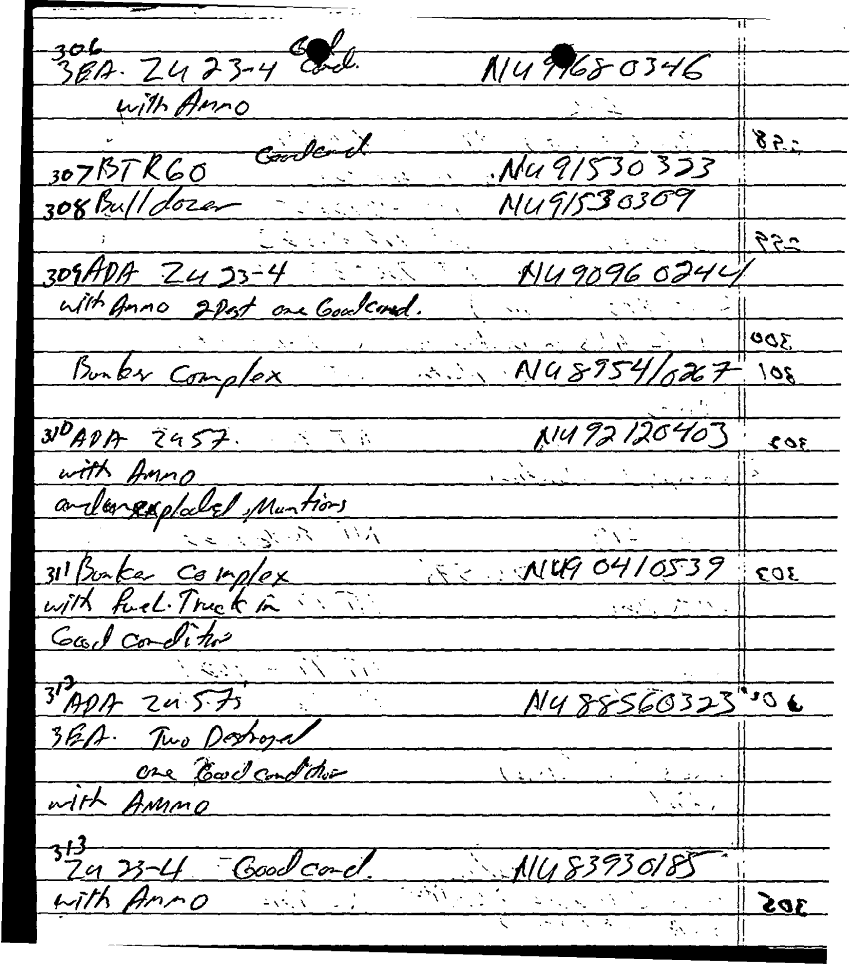 306 Good
3EA. Zu 23-4 Cond. NU 91680346
with Ammo
Good cond
307 BTR60 NU 91530323
308 Bulldozer NU 91530309
309 ADA Zu 23-4 NU 90960244
with Ammo 2 Dest one Good cond.
300
Bunker Complex NU 89541/0267 301
310 ADA Zu 57. NU 92120403 302
with Ammo
and unexploded, Muntions
311 Bunker Complex NU 90410539 303
with fuel. Truck in
Good condition
312 ADA Zu 57s NU 88560323
3EA. Two Destroyed
one Good condition
with Ammo
313
Zu 23-4 - Good cond. NU 83930185
with Ammo 305